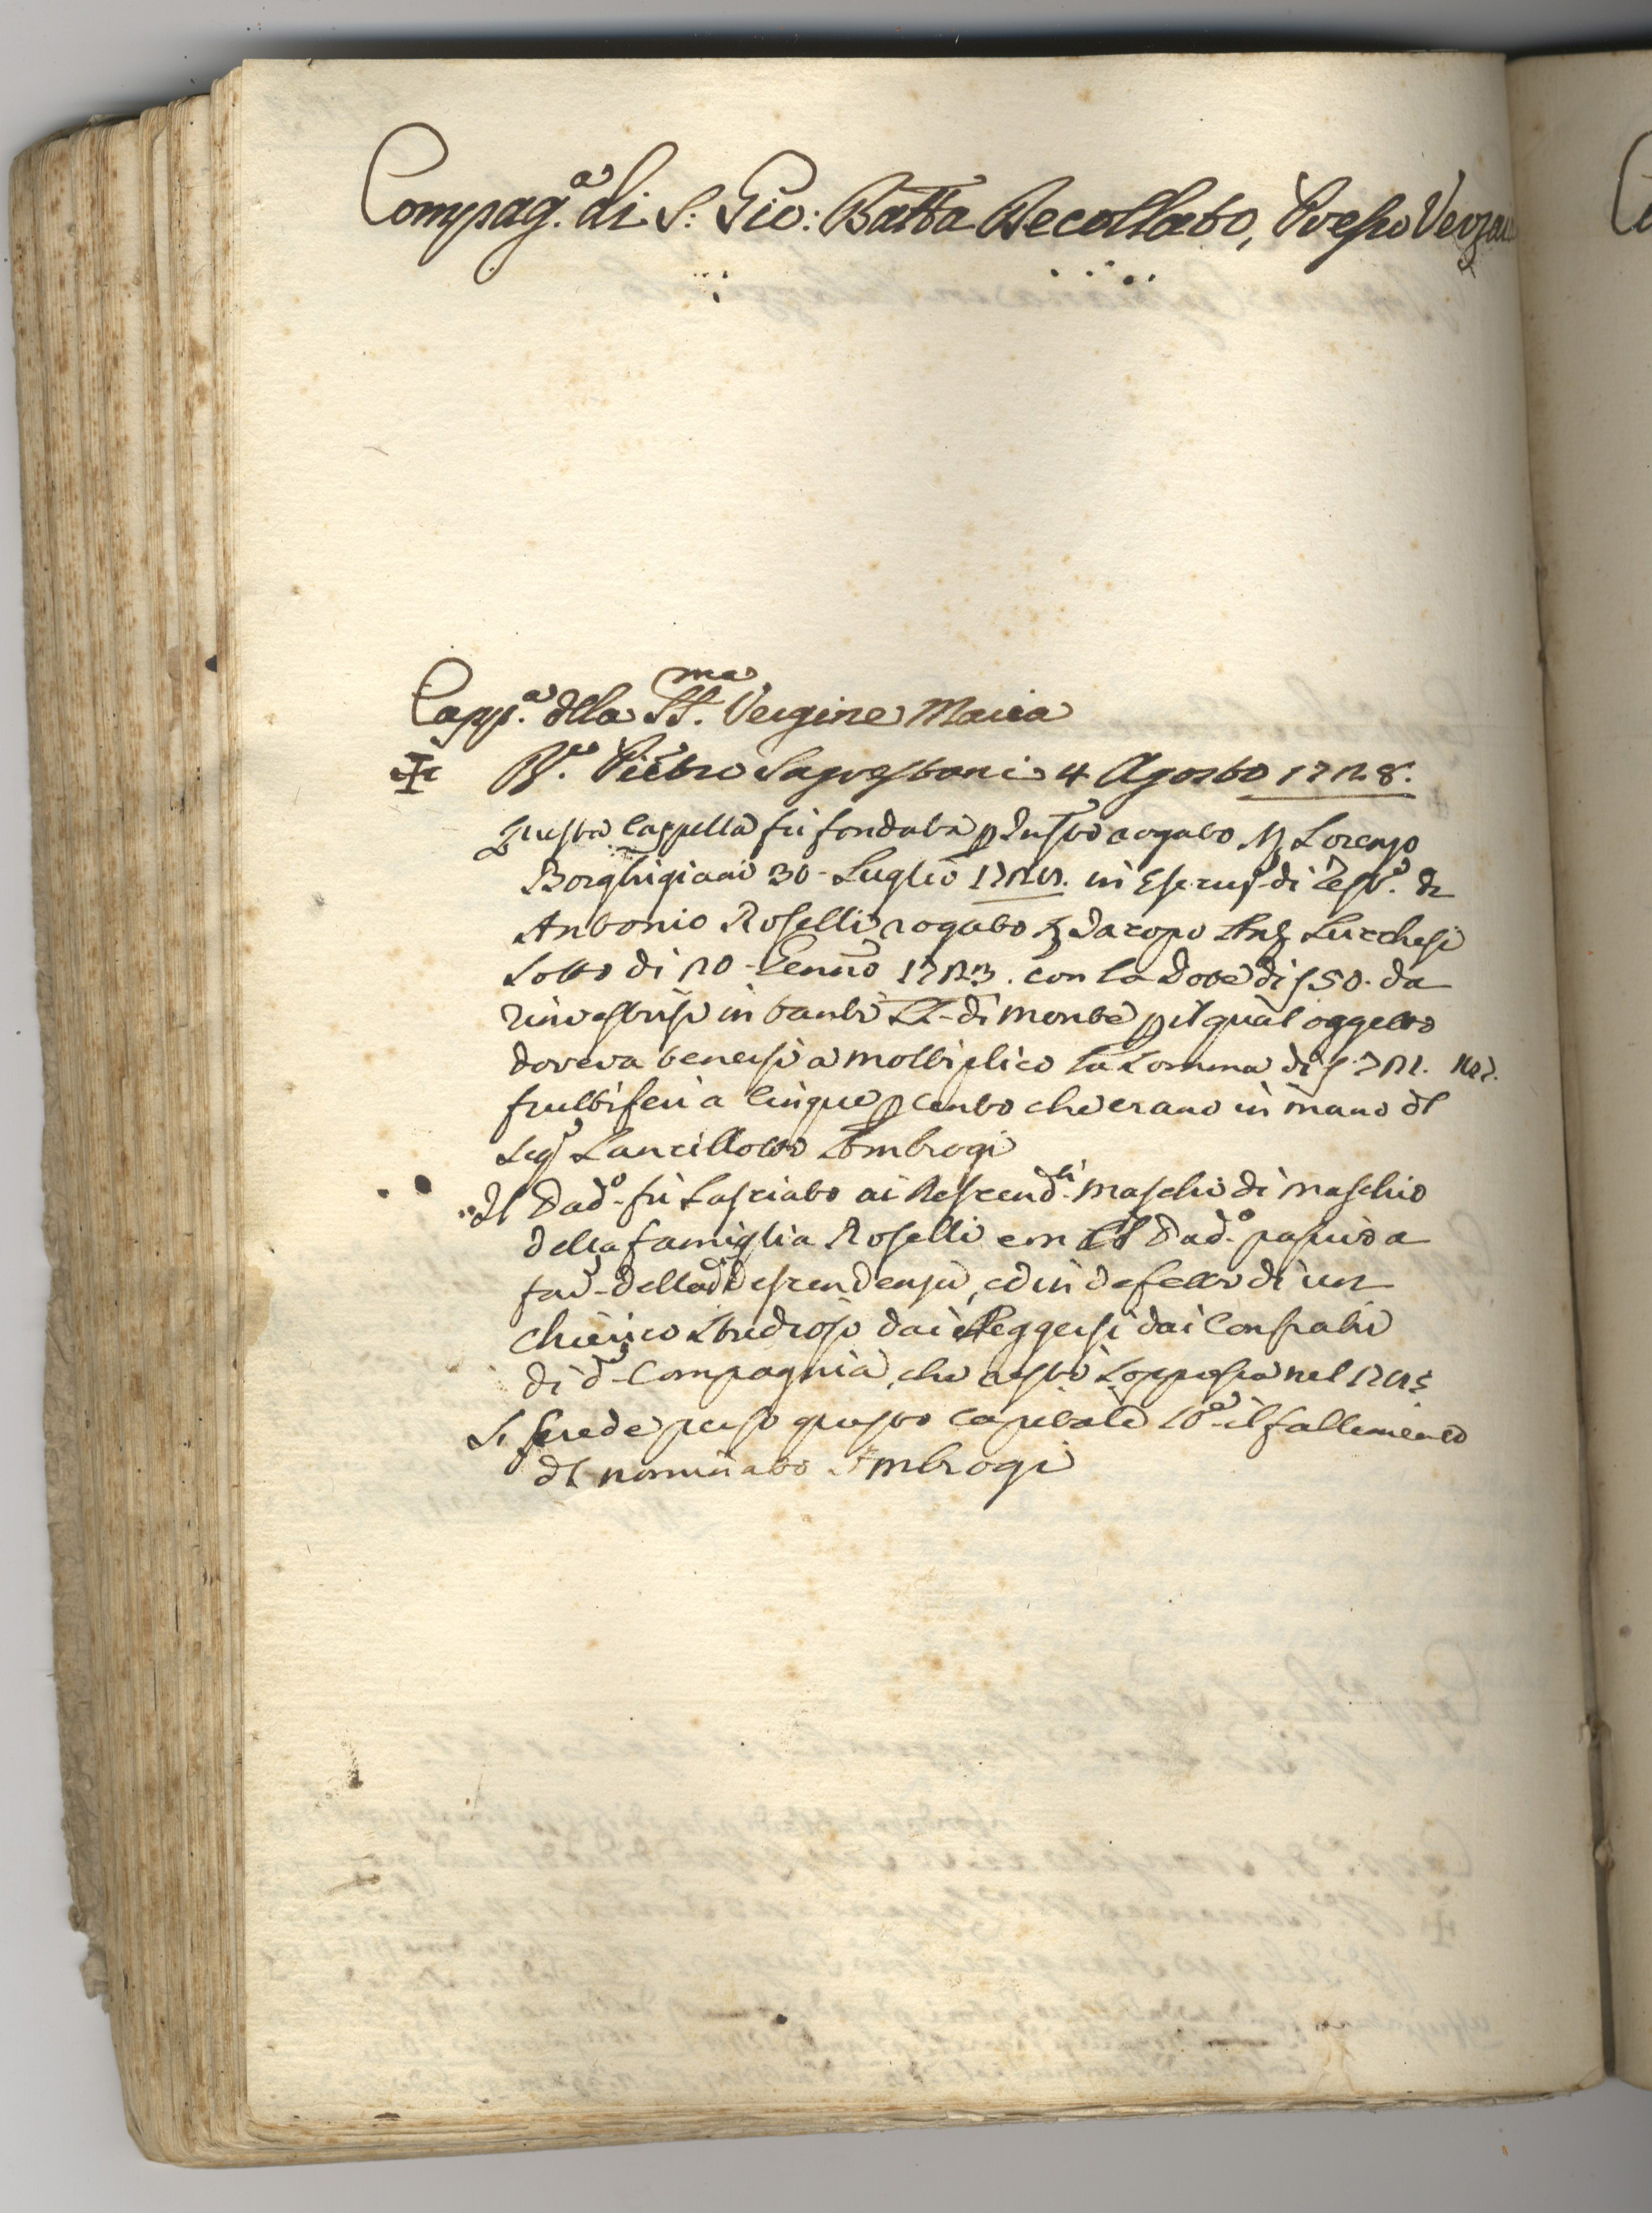 Compag.a di S: Gio: Batta Decollato, Presso Verzai
Capp.a dlla SS.ma Vergine Maria
P.e Pietro Sagrestani 4 Agosto 1728.
Questa Cappella fù fondata p Insto rogato Lorenzo
Borghigiani 30 Luglio 172 in di Test.o di
Antonio Roselli rogato Jacopo Ant Lucchesi
Sotto di 20 Genn̄o 1723. con la Dote di 150. da
rinvestirsi in tanti LL. di Monte p il qual oggetto
doveva tenersi a moltiplico la Somma di
fruttiferi a Cinque p Cento che erano in mano dl
Sig Lancillotto Ambrogi
Il Pad.o fù Lasciato ai Descend.ti Maschi di Maschio
della famiglia Roselli e il Pad.o passivo a
fav della d Descendenza, ed in defetto di un
Chierico Studioso da eleggersi dai Confrati
di d Compagnia, che restò Soppressa nel
Si Crede perso questo Capitale il fallimento
dl nominato Ambrogi